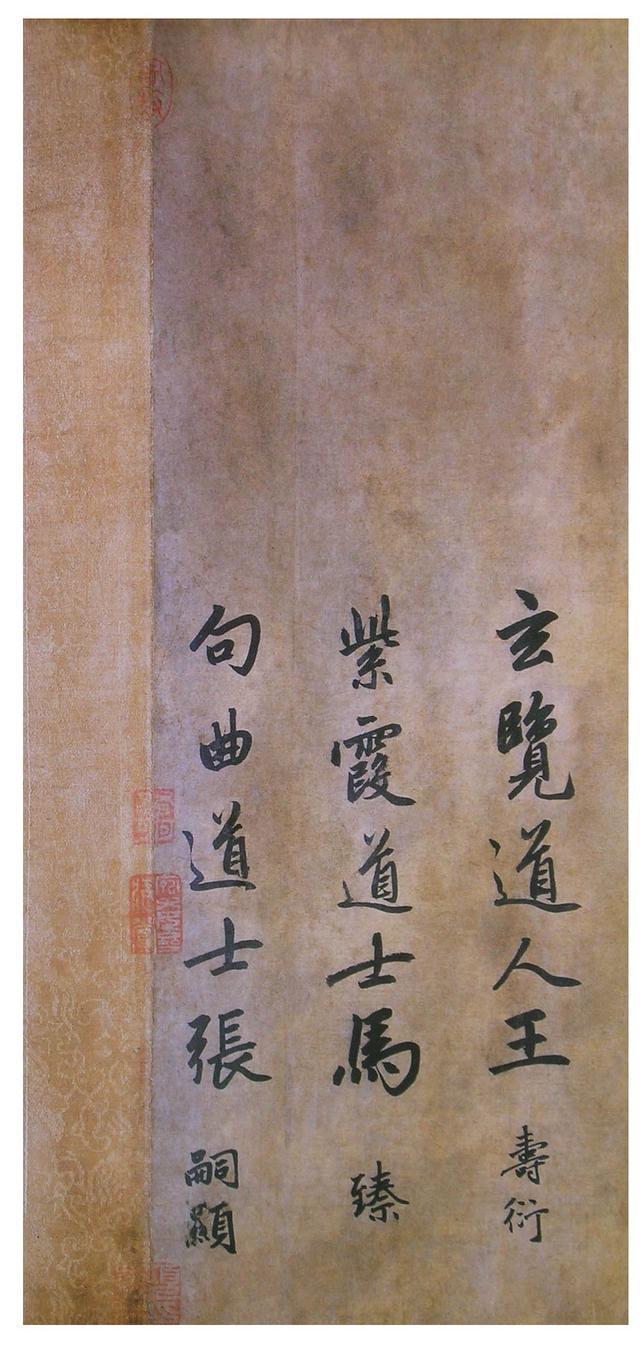 玄覽道人王壽衍
紫霞道士馬臻
句曲道士張嗣顯